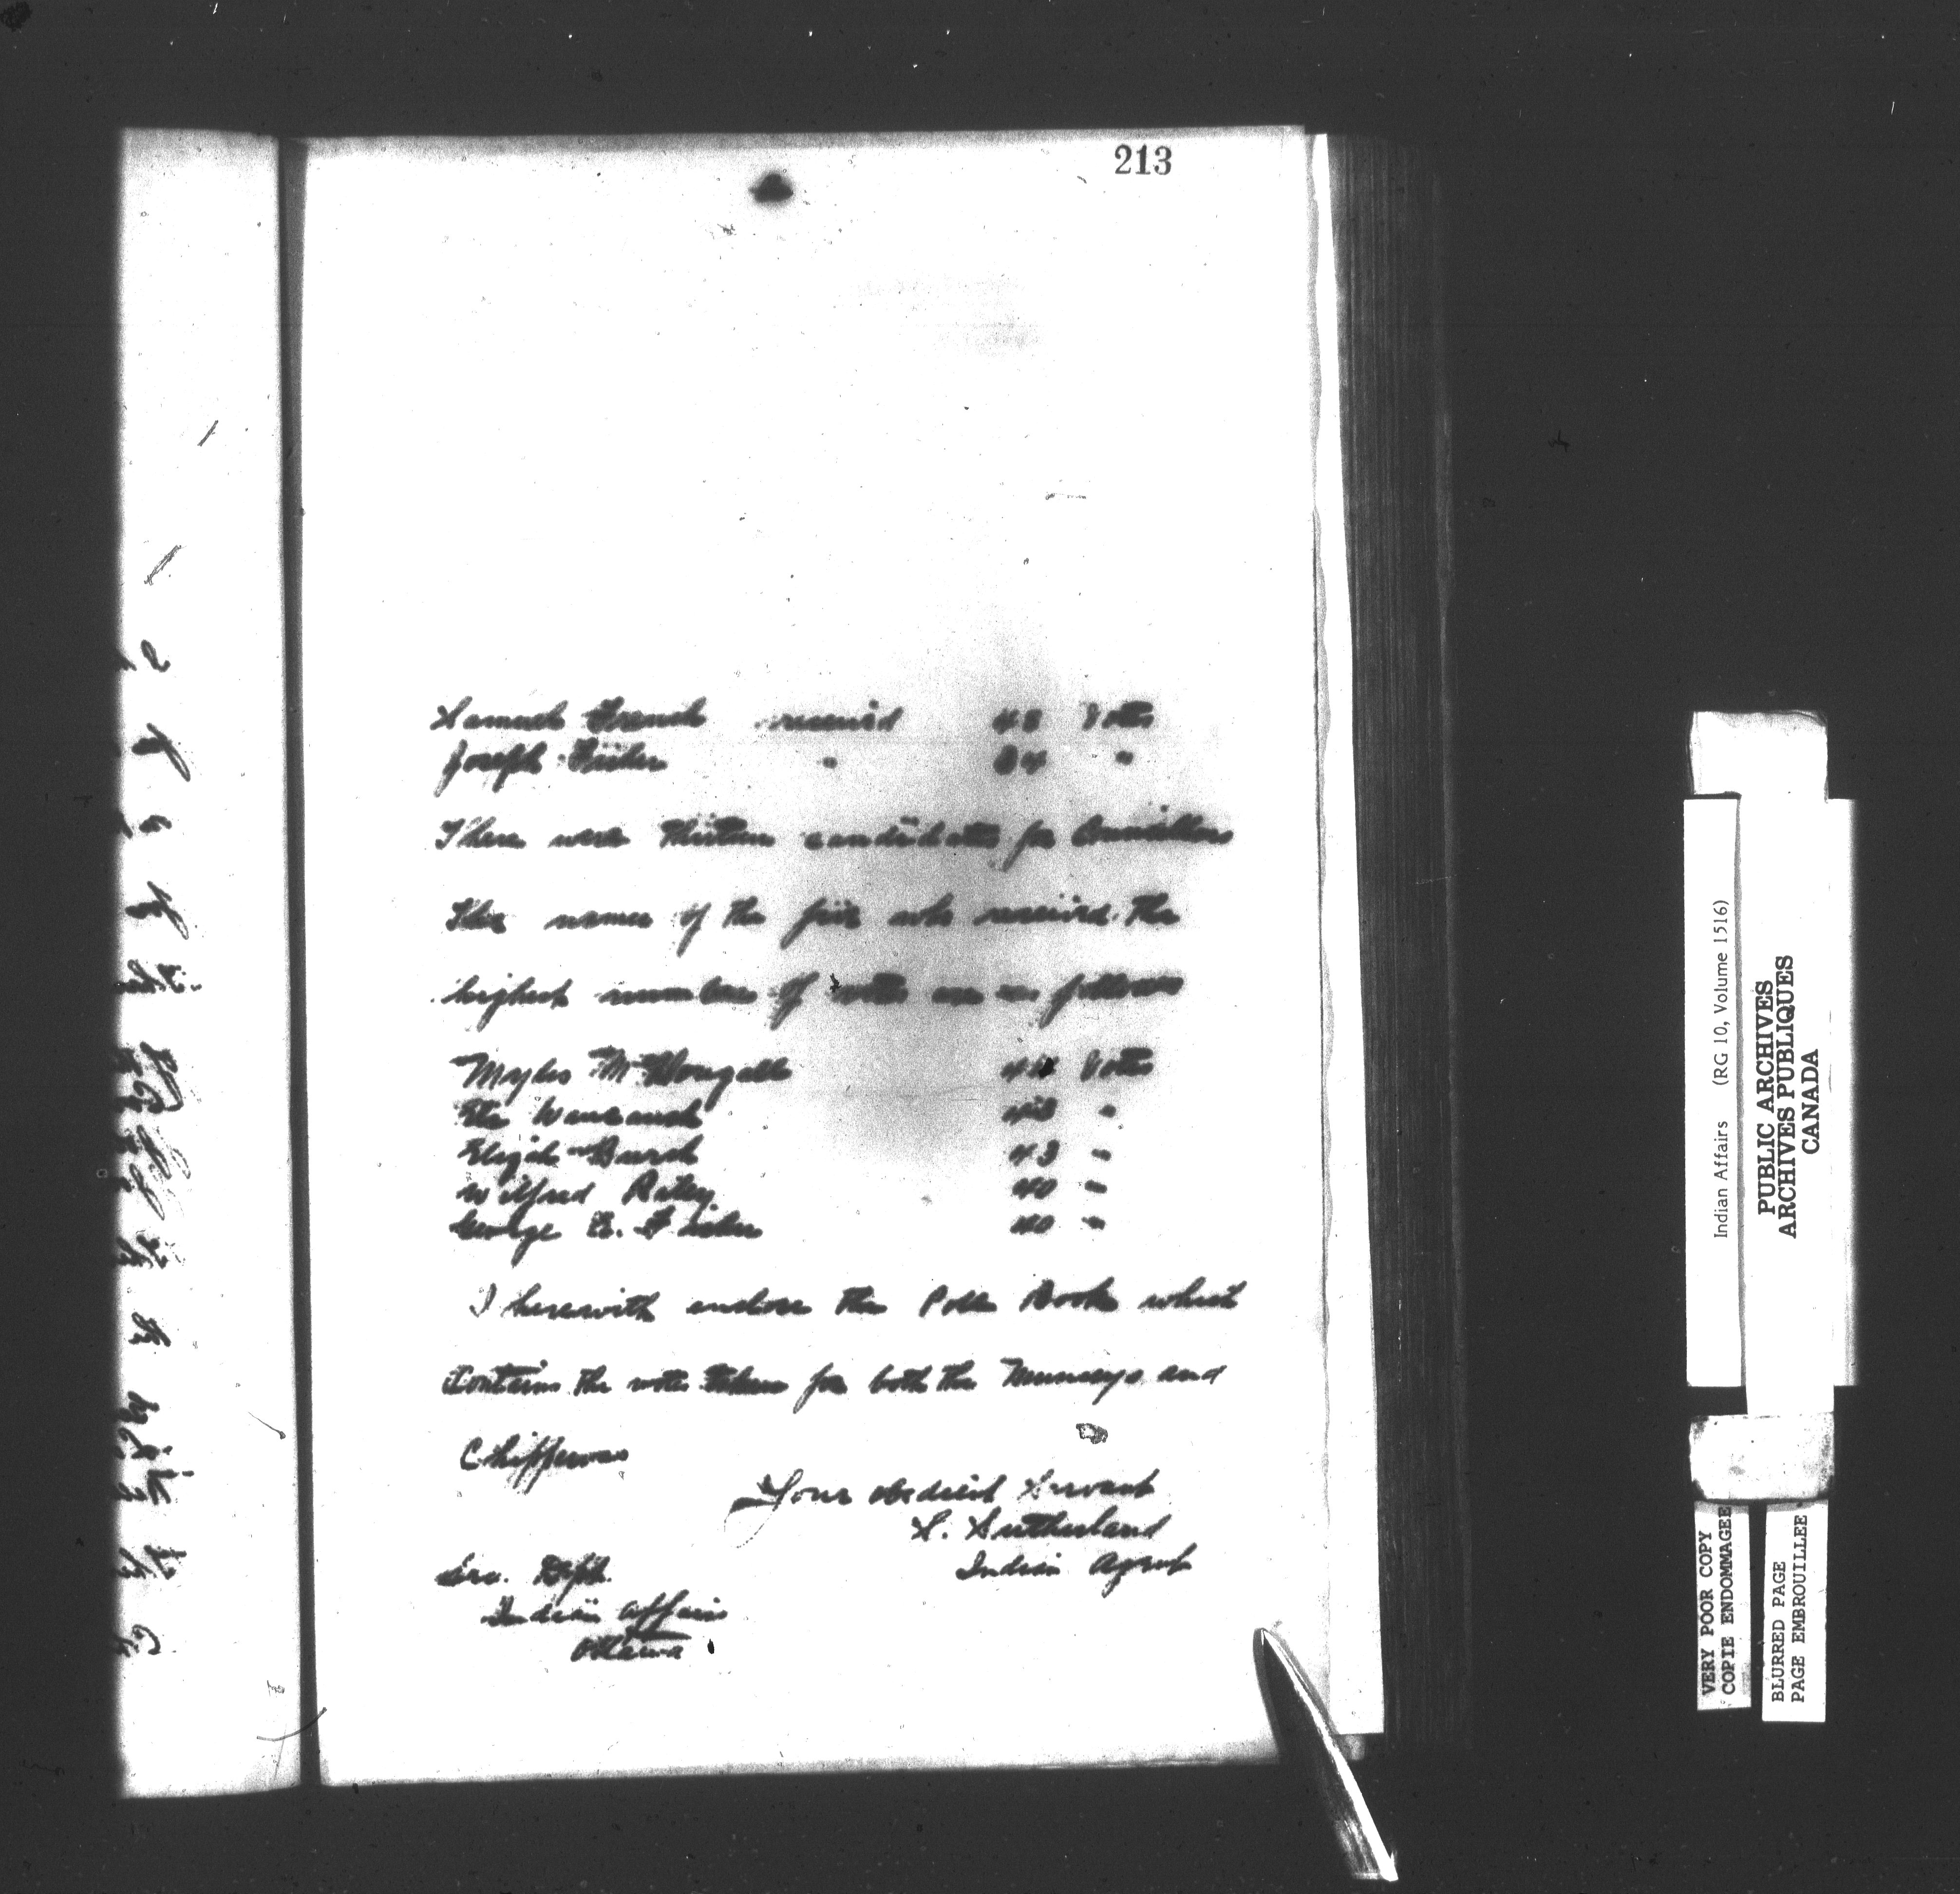 213
Samuel French received 48 Votes
Joseph Fisher " 34 "
There were thirteen candidates for Councillors
The names of the five who received the
highest number of votes are as follows
Myles McDougall 44 Votes
43 "
Elijah Burch 43 "
Wilfred Riley 40 "
George E. Fisher 40 "
I herewith enclose the Poll Book which
Contains the votes taken for both the Munceys and
Chippewas
Your obedient Servant
S. Sutherland
Indian Agent
Sec. Dept.
Indian Affairs
Ottawa
Indian Affairs (RG 10, Volume 1516)
PUBLIC ARCHIVES
ARCHIVES PUBLIQUES
CANADA
VERY POOR COPY
COPIE ENDOMMAGEE
BLURRED PAGE
PAGE EMBROUILLEE